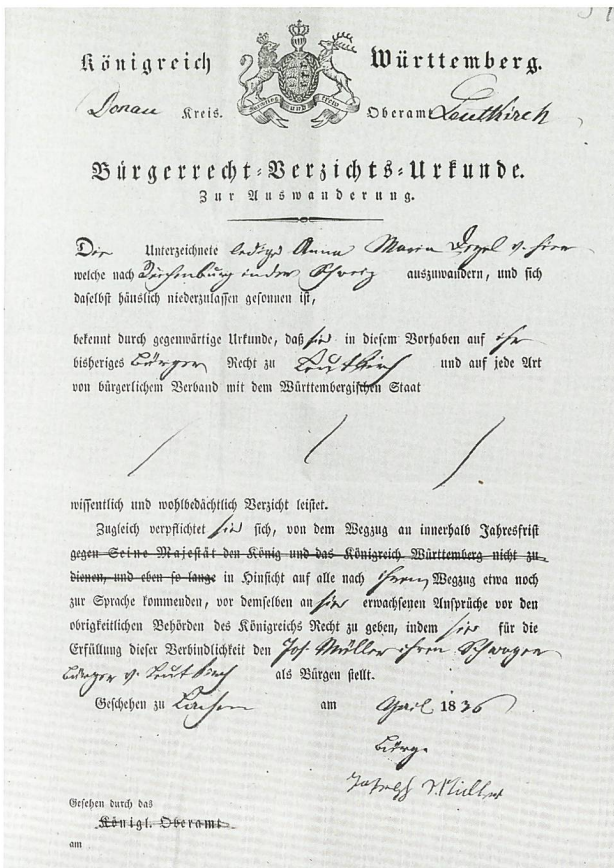 Königreich Württemberg.
Donau Kreis. Oberamt Leutkirch
furchtlos und trew
Bürgerrecht-Verzichts-Urkunde.
Zur Auswanderung.
Die Unterzeichnete ledige Anna Maria v. hier
welche nach in der Schweiz auszuwandern, und sich
daselbst häuslich niederzulassen gesonnen ist,
bekennt durch gegenwärtige Urkunde, daß sie in diesem Vorhaben auf ihr
bisheriges Bürger Recht zu Leutkirch und auf jede Art
von bürgerlichem Verband mit dem Württembergischen Staat
wissentlich und wohlbedächtlich Verzicht leistet.
Zugleich verpflichtet sie sich, von dem Wegzug an innerhalb Jahresfrist
gegen Seine Majestät den König und das Königreich Württemberg nicht zu
dienen, und eben so lange in Hinsicht auf alle nach ihrem Wegzug etwa noch
zur Sprache kommenden, vor demselben an sie erwachsenen Ansprüche vor den
obrigkeitlichen Behörden des Königreichs Recht zu geben, indem sie für die
Erfüllung dieser Verbindlichkeit den Jos. Müller ihren Schwager
Bürger v. Leutkirch als Bürgen stellt.
Geschehen zu am April 1836
Bürge
Joseph Müller
Gesehen durch das
Königl. Oberamt
am